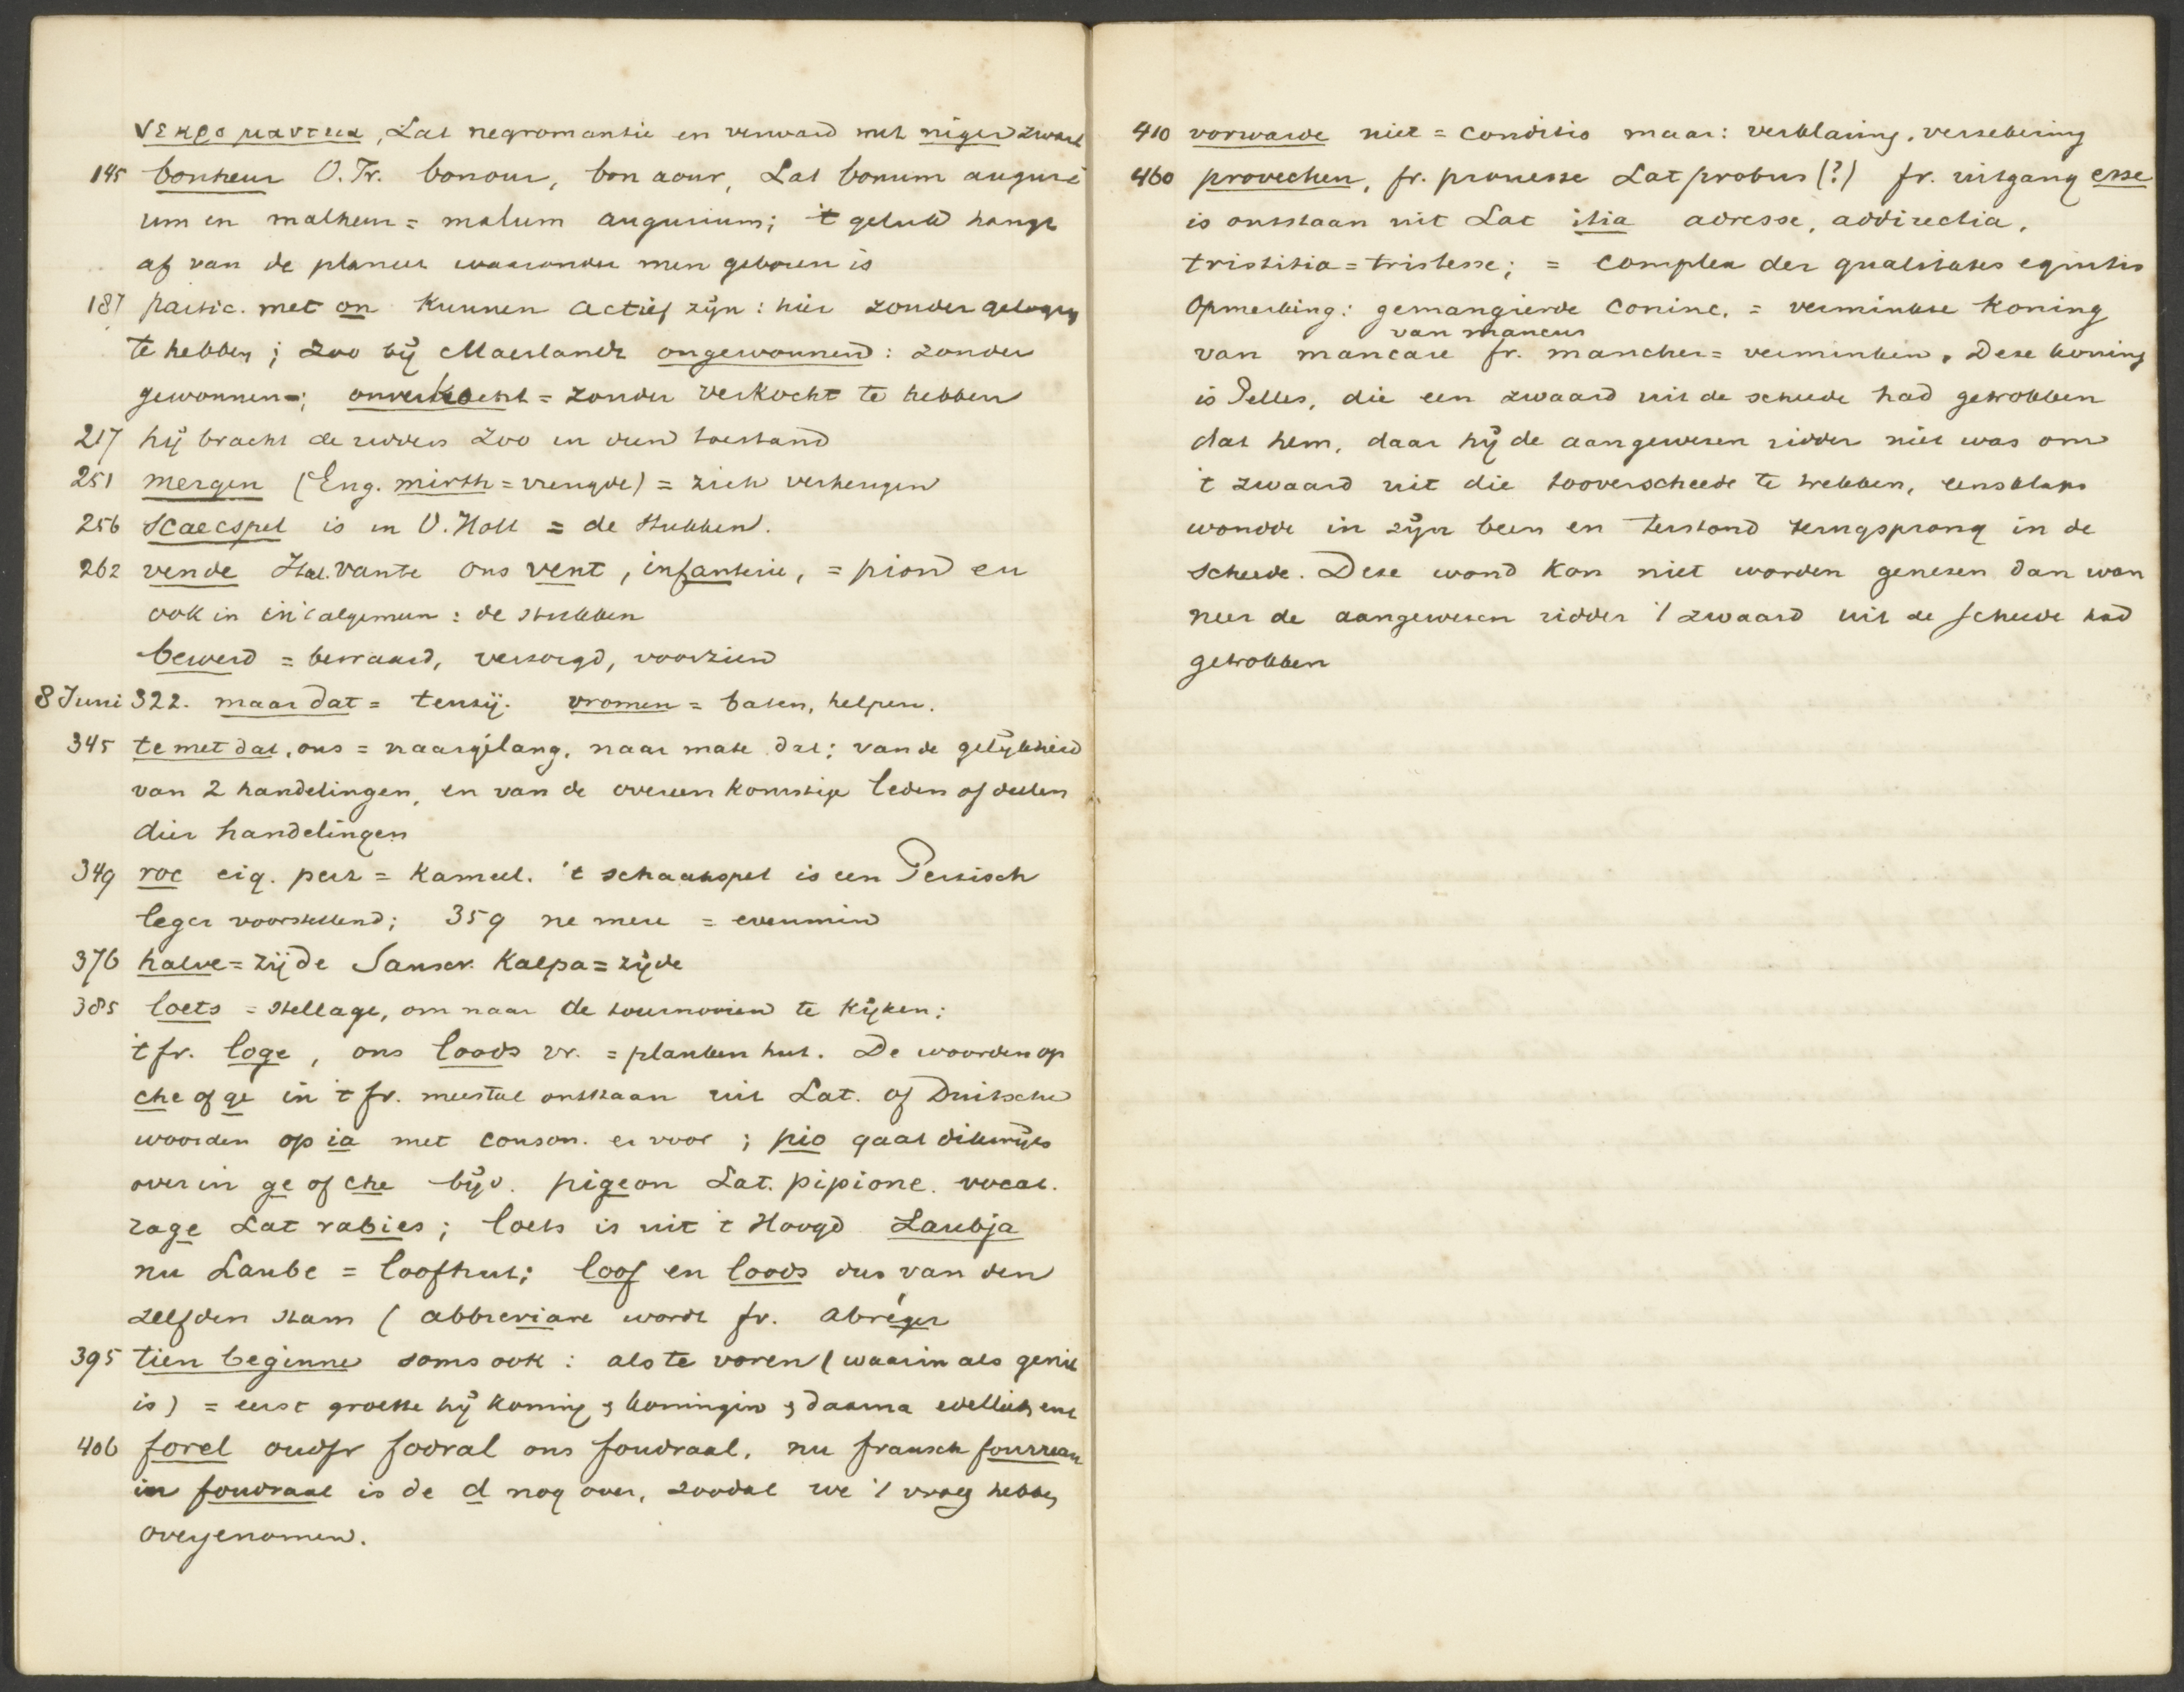 νεκρομαντεια, Lat negromantie en verward met niger zwart
145 bonheur O. Fr. bonour, bon aour, Lat bonum auguri
um en malheur = malum augurium; 't geluk hangt
af van de planeet waaronder men geboren is
187 partic. met on kunnen actief zijn: hier zonder gelogen
te hebben; zoo bij Maerlandt ongewonnen: zonder
gewonnen -; onverkocht = zonder verkocht te hebben
217 hij bracht de ridders zoo in dien toestand
251 mergen (Eng. mirth = vreugde) = zich verheugen
256 Scaecspel is in V. Holl = de stukken.
262 vende Ital. vante ons vent, infanterie, = pion en
ook in in 't algemeen: de stukken
bewerd = bewaard, verzorgd, voorzien
8 Juni 322. maar dat = tenzij. vromen = baten, helpen.
345 te met dat, ons = naargelang, naar mate dat; van de gelijkheid
van 2 handelingen, en van de overeenkomstige leden of deelen
dier handelingen
349 roc eig. perz = kameel. 't schaakspel is een Perzisch
leger voorstellend; 359 ne mere = evenmin
376 halve = zijde Sanscr. Kalpa = zijde
385 loets = stellage, om naar de tournooien te kijken;
't fr. loge, ons loods vr. = planken hut. De woorden op
che of ge in 't fr. meestal ontstaan uit Lat. of Duitsche
woorden op ia met conson. er voor; pio gaat dikwijls
over in ge of che bijv. pigeon Lat. pipione. vocat.
rage Lat rabies; loets is uit 't Hoogd Laubja
nu Laube = loofhut; loof en loods dus van den
zelfden stam (abbreviare wordt fr. abréger
395 tien beginne soms ook: als te voren (waarin als geniet
is) = eerst groette hij koning & koningin & daarna edellieden enz
406 forel oudfr fodral ons foudraal. nu fransch fourreau
in foudraal is de d nog over, zoodat we 't vroeg hebben
overgenomen.
410 vorwarde niet = conditio maar: verklaring, verzekering
460 provechen, fr. prouesse Lat probus (?) fr. uitgang esse
is ontstaan uit Lat itia adresse, addirectia,
tristitia = tristesse; = complex der qualitates equitis
Opmerking: gemangierde coninc. = verminkte Koning
van mancus
van mancare fr. mancher = verminken. Deze koning
is Pelles, die een zwaard uit de scheede had getrokken
dat hem, daar hij de aangewezen ridder niet was om
't zwaard uit die tooverscheede te trekken, eensklaps
wondde in zijn been en terstond terugsprong in de
scheede. Deze wond kon niet worden genezen dan wan
neer de aangewezen ridder 't zwaard uit de scheede had
getrokken